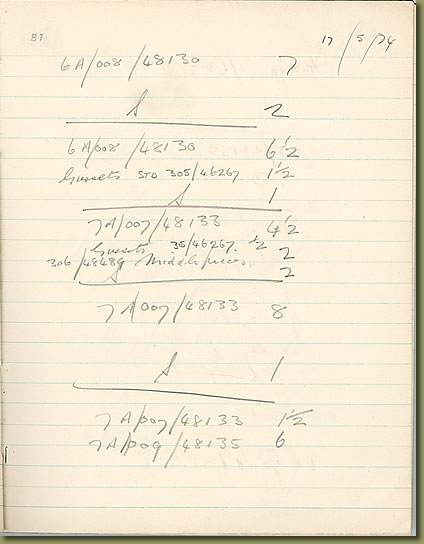 87 17/5/74
6A/008/48130 7
S 2
6A/008/48130 6½
Gussets STD 305/46267 1½
S 1
7A/007/48133 4½
Gussets 35/46267. ½
306/48489 Middle pieces 2
S 2
7A/007/48133 8
S 1
7A/007/48133 1½
7A/009/48135 6